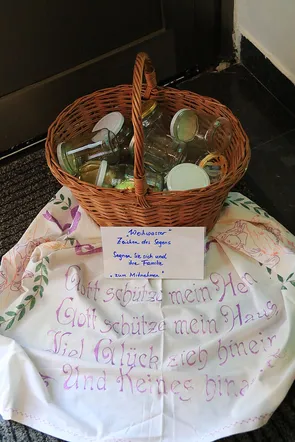 "Weihwasser"
Zeichen des Segens
Segnen Sie sich und
ihre Familie
"zum Mitnehmen"
Gott schütze mein
Gott schütze mein Haus
Viel Glück zieh hinein
Und Keines